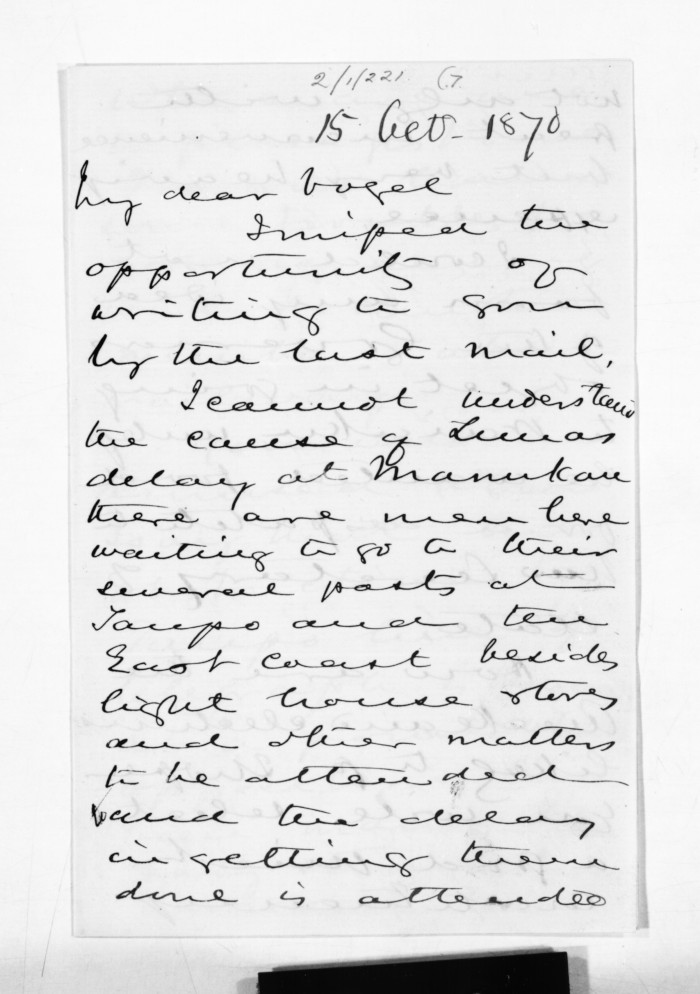 2/1/221 G7
15 Oct- 1870
My dear Vogel
I missed the
opportunity of
writing to you
by the last mail.
I cannot understand
the cause of Lunas
delay at Manukau
there are men here
waiting to go to their
several posts at
Taupo and the
East Coast besides
light house stores
and other matters
to be attended
and the delay
in getting them
done is attended